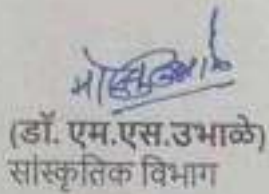 (डॉ. एम.एस.उभाळे)
सांस्कृतिक विभाग